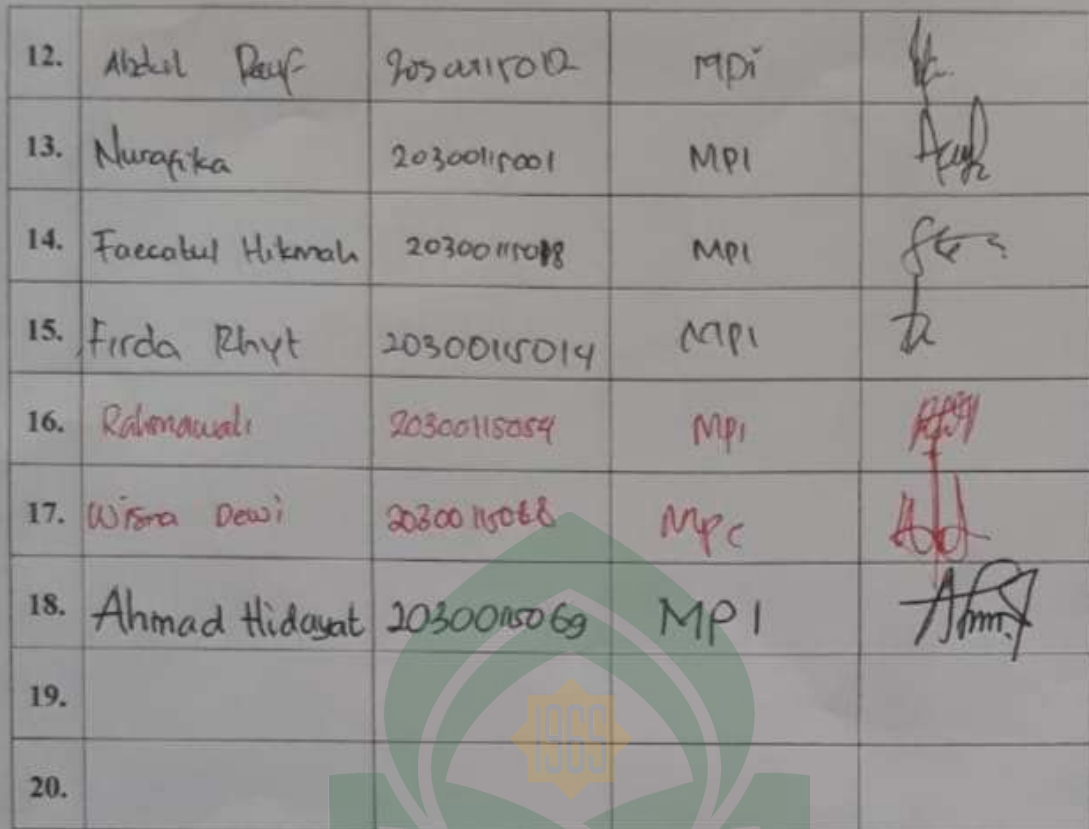 12. Abdul Rauf 20300115012 MPi
13. Nurafika 20300115001 MPI
14. Faecatul Hikmah 20300115018 MPI
15. Firda Rhyt 20300115014 MPI
16. Rahmawati 20300115054 MPI
17. Wisna Dewi 20300115068 MPI
18. Ahmad Hidayat 20300115069 MPI
19.
1965
20.